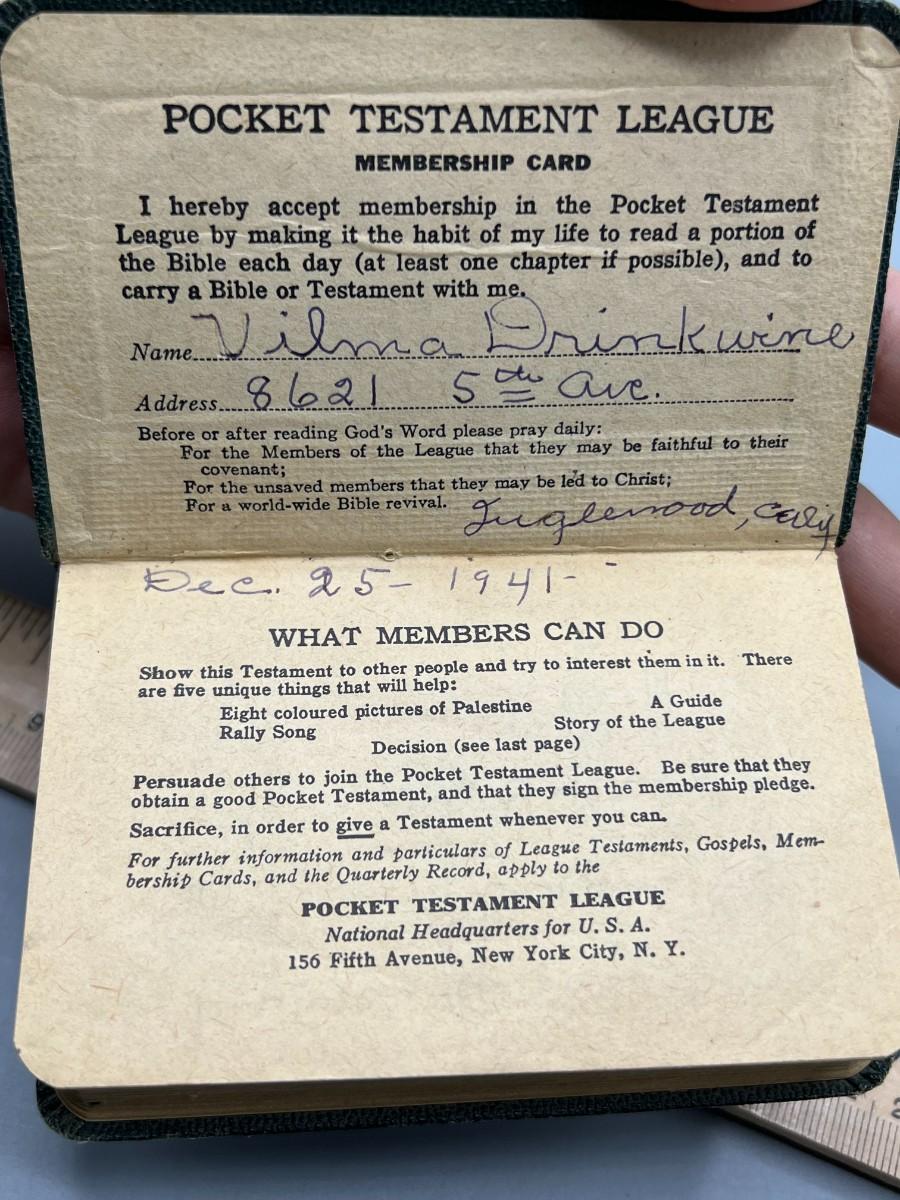 POCKET TESTAMENT LEAGUE
MEMBERSHIP CARD
I hereby accept membership in the Pocket Testament
League by making it the habit of my life to read a portion of
the Bible each day (at least one chapter if possible), and to
carry a Bible or Testament with me.
Name Vilma Drinkwine
Address 8621 5th Ave.
Before or after reading God's Word please pray daily:
For the Members of the League that they may be faithful to their
covenant;
For the unsaved members that they may be led to Christ;
For a world-wide Bible revival.
Inglewood, Calif
Dec. 25 - 1941 -
WHAT MEMBERS CAN DO
Show this Testament to other people and try to interest them in it. There
are five unique things that will help:
Eight coloured pictures of Palestine A Guide
Rally Song Story of the League
Decision (see last page)
Persuade others to join the Pocket Testament League. Be sure that they
obtain a good Pocket Testament, and that they sign the membership pledge.
Sacrifice, in order to give a Testament whenever you can.
For further information and particulars of League Testaments, Gospels, Mem-
bership Cards, and the Quarterly Record, apply to the
POCKET TESTAMENT LEAGUE
National Headquarters for U. S. A.
156 Fifth Avenue, New York City, N. Y.
9
2